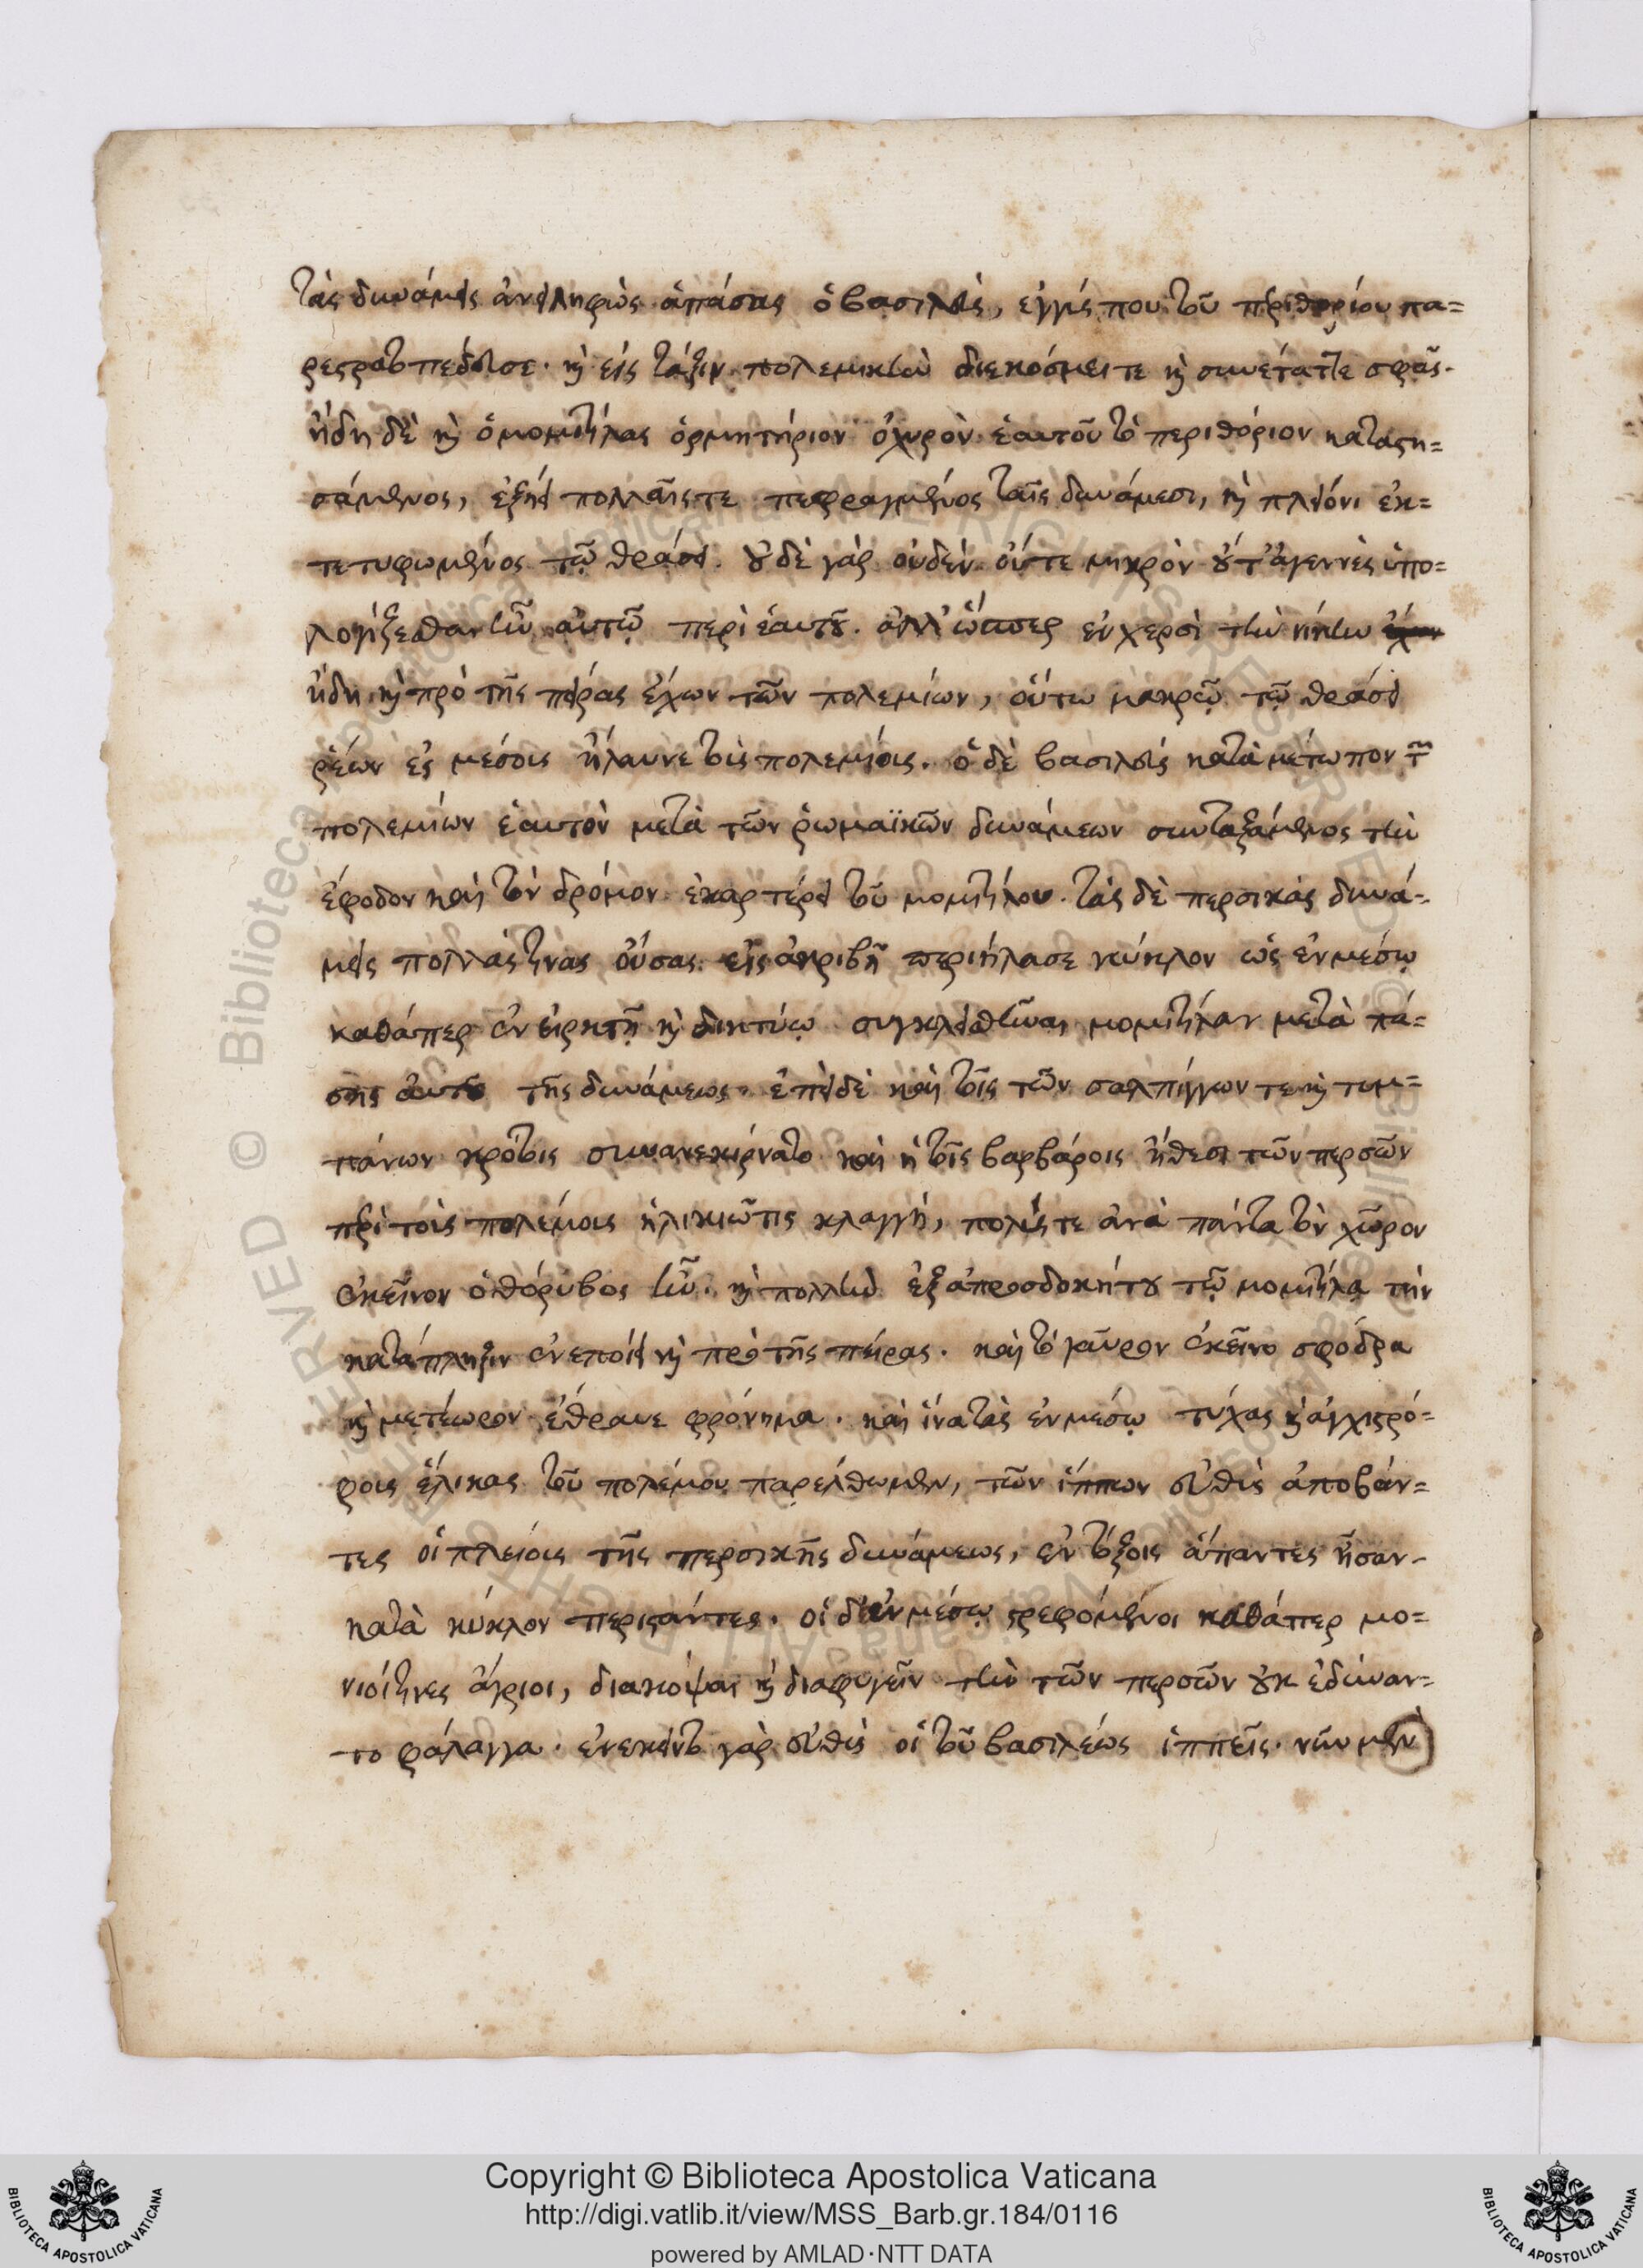 τὰς δυνάμεις ἀνειληφὼς ἁπάσας ὁ βασιλεὺς, ἐγγύς που τοῦ περιθωρίου πα=
ρεστρατοπέδευσε· καὶ εἰς τάξιν πολεμικὴν διεκόσμει τε καὶ συνέταττε σφᾶς.
ἤδη δὲ καὶ ὁ μομιτζίλας ὁρμητήριον ὀχυρὸν ἑαυτοῦ τὸ περιθόριον καταστη=
σάμενος, ἐξῄει πολλαῖς τε πεφραγμένος ταῖς δυνάμεσι, καὶ πλείονι ἐκ=
τετυφωμένος τῷ θράσει. οὐδὲ γὰρ οὐδὲν οὔτε μικρὸν οὔτ' ἀγεννὲς ὑπο=
λογίζεσθαι ἦν αὐτῷ περὶ ἑαυτοῦ. ἀλλ' ὥσπερ ἐν χερσὶ τὴν νίκην
ἤδη καὶ πρὸ τῆς πείρας ἔχων τῶν πολεμίων, οὕτω μακρῷ τῷ θράσει
ῥέων ἐς μέσους ἤλαυνε τοὺς πολεμίους. ὁ δὲ βασιλεὺς κατὰ μέτωπον τῶν
πολεμίων ἑαυτὸν μετὰ τῶν ῥωμαϊκῶν δυνάμεων συνταξάμενος τὴν
ἔφοδον καὶ τὸν δρόμον ἐκαρτέρει τοῦ μομιτζίλου. τὰς δὲ περσικὰς δυνά=
μεις πολλάς τινας οὔσας εἰς ἀκριβῆ περιήλασε κύκλον ὡς ἐν μέσῳ
καθάπερ ἐν εἱρκτῇ καὶ δικτύῳ συγκλεισθῆναι μομιτζίλαν μετὰ πά=
σης αὐτοῦ τῆς δυνάμεως. ἐπεὶ δὲ καὶ τοῖς τῶν σαλπίγγων τε καὶ τυμ=
πάνων κρότοις συνανεκίρνατο καὶ ἡ τοῖς βαρβάροις ἤθεσι τῶν περσῶν
περὶ τοὺς πολέμους ἡλικιῶτις κλαγγὴ, πολύς τε ἀνὰ πάντα τὸν χῶρον
ἐκεῖνον ὁ θόρυβος ἦν. καὶ πολλὴν ἐξ ἀπροσδοκήτου τῷ μομιτζίλᾳ τὴν
κατάπληξιν ἐνεποίει καὶ πρὸ τῆς πείρας. καὶ τὸ γαῦρον ἐκεῖνο σφόδρα
καὶ μετέωρον ἔθραυε φρόνημα. καὶ ἵνα τὰς ἐν μέσῳ τύχας καὶ ἀγχιστρό=
φους ἕλικας τοῦ πολέμου παρέλθωμεν, τῶν ἵππων εὐθὺς ἀποβάν=
τες οἱ πλείους τῆς περσικῆς δυνάμεως, ἐν τόξοις ἅπαντες ἦσαν
κατὰ κύκλον περιστάντες. οἱ δ' ἐν μέσῳ στρεφόμενοι καθάπερ μο=
νιοί τινες ἄγριοι, διακόψαι καὶ διαφυγεῖν τὴν τῶν περσῶν οὐκ ἐδύναν=
το φάλαγγα. ἐνέκειντο γὰρ εὐθὺς οἱ τοῦ βασιλέως ἱππεῖς. νῦν μὲν
Copyright © Biblioteca Apostolica Vaticana
http://digi.vatlib.it/view/MSS_Barb.gr.184/0116
powered by AMLAD·NTT DATA
BIBLIOTECA APOSTOLICA VATICANA
BIBLIOTECA APOSTOLICA VATICANA